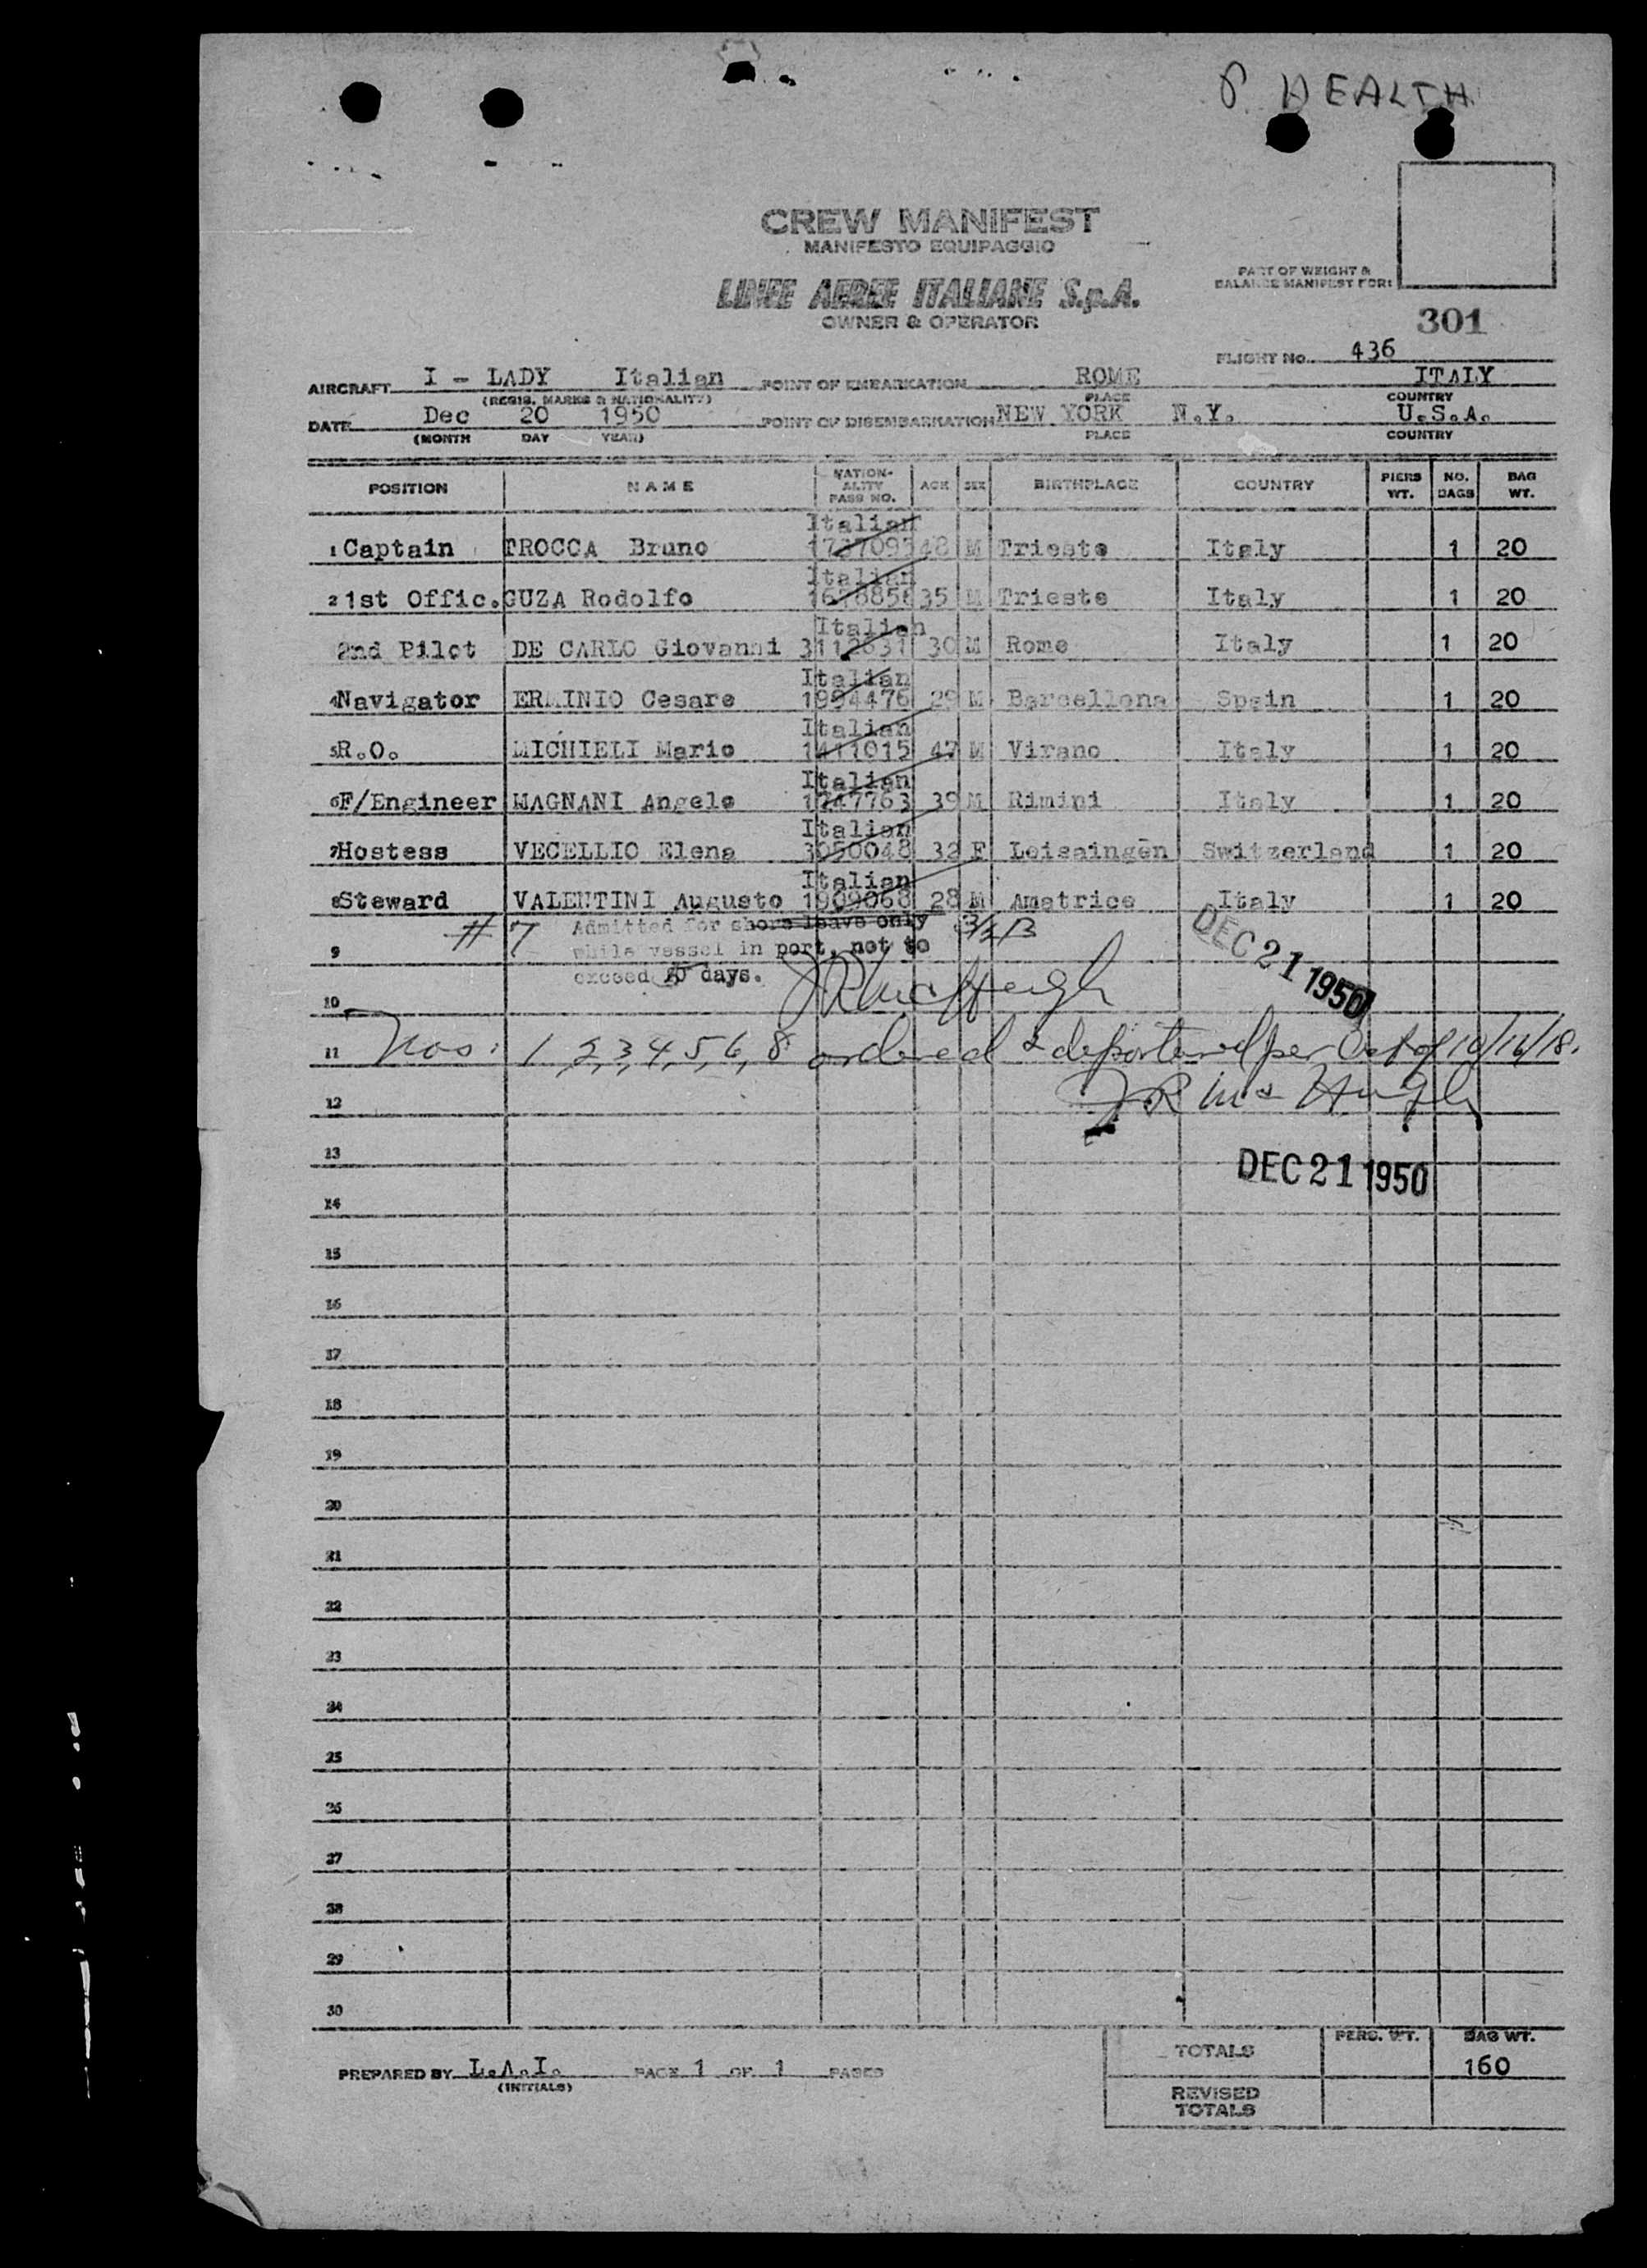 P. HEALTH
CREW MANIFEST
MANIFESTO EQUIPAGGIO
LINEE AEREE ITALIANE S.p.A.
OWNER & OPERATOR
PART OF WEIGHT &
BALANCE MANIFEST FOR:
301
FLIGHT No. 436
AIRCRAFT I - LADY Italian POINT OF EMBARKATION ROME ITALY
(REGIS. MARKS & NATIONALITY) PLACE COUNTRY
DATE Dec 20 1950 POINT OF DISEMBARKATION NEW YORK N.Y. U.S.A.
(MONTH DAY YEAR) PLACE COUNTRY
POSITION NAME NATION-ALITY PASS NO. AGE SEX BIRTHPLACE COUNTRY PIERS WT. NO. BAGS BAG WT.
Italian
1 Captain TROCCA Bruno 48 M Trieste Italy 1 20
Italian
2 1st Offic. GUZA Rodolfo 35 M Trieste Italy 1 20
Italian
2nd Pilot DE CARLO Giovanni 3112631 30 M Rome Italy 1 20
Italian
4 Navigator ERMINIO Cesare 1994476 29 M Barcellona Spain 1 20
Italian
5 R.O. MICHIELI Mario 1411015 47 M Virano Italy 1 20
Italian
6 F/Engineer MAGNANI Angelo 1247763 39 M Rimini Italy 1 20
Italian
7 Hostess VECELLIO Elena 3050048 32 F Leissingen Switzerland 1 20
Italian
8 Steward VALENTINI Augusto 1909068 28 M Amatrice Italy 1 20
# 7 Admitted for shore leave only
9 while vessel in port, not to
exceed days.
DEC 21 1950
10
11 Nos: 1, 2, 3, 4, 5, 6, 8 ordered & deported per Act of 10/16/18.
12 J R McHugh
13
DEC 21 1950
14
15
16
17
18
19
20
21
22
23
24
25
26
27
28
29
30
TOTALS PERS. WT. BAG WT.
160
PREPARED BY L.A.I. PAGE 1 OF 1 PAGES
(INITIALS)
REVISED
TOTALS